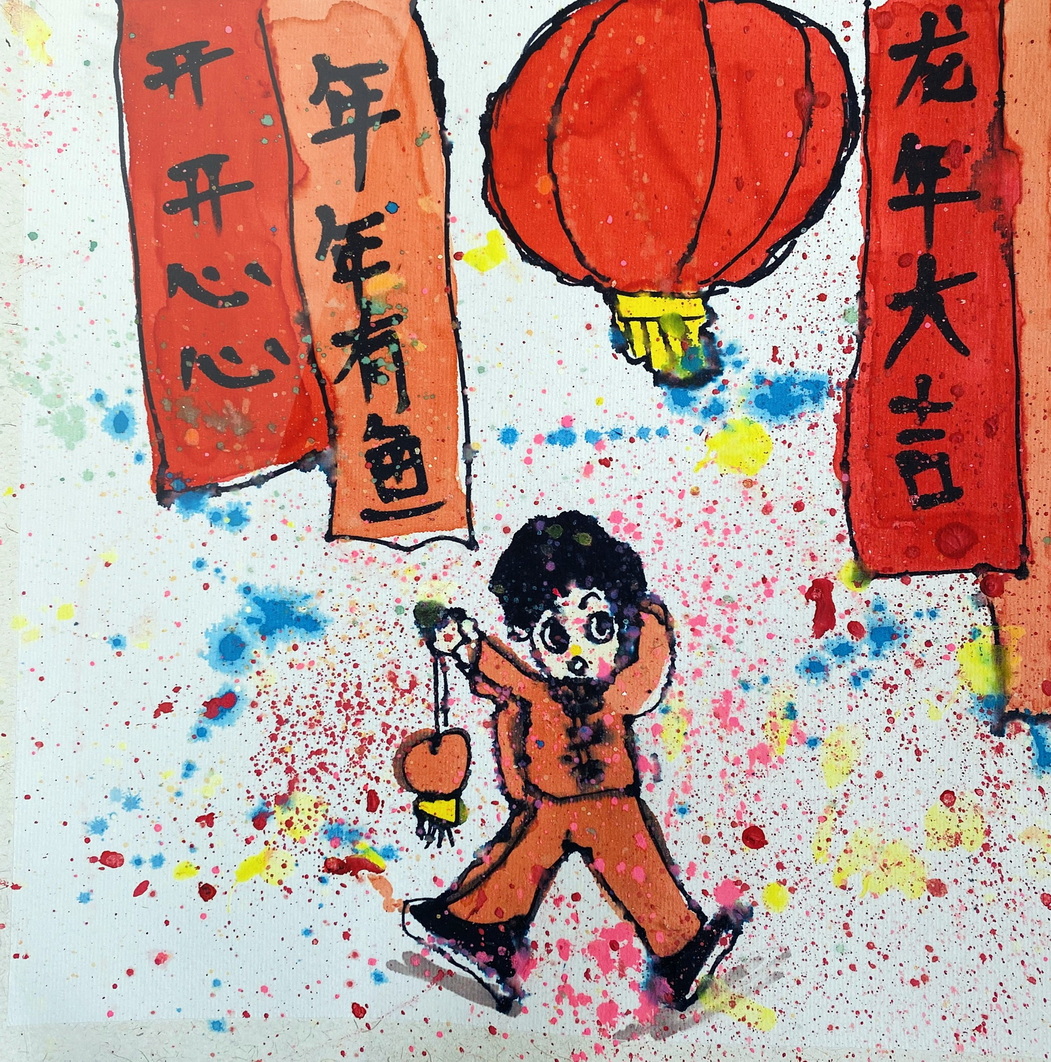 开开心心
年年有鱼
龙年大吉